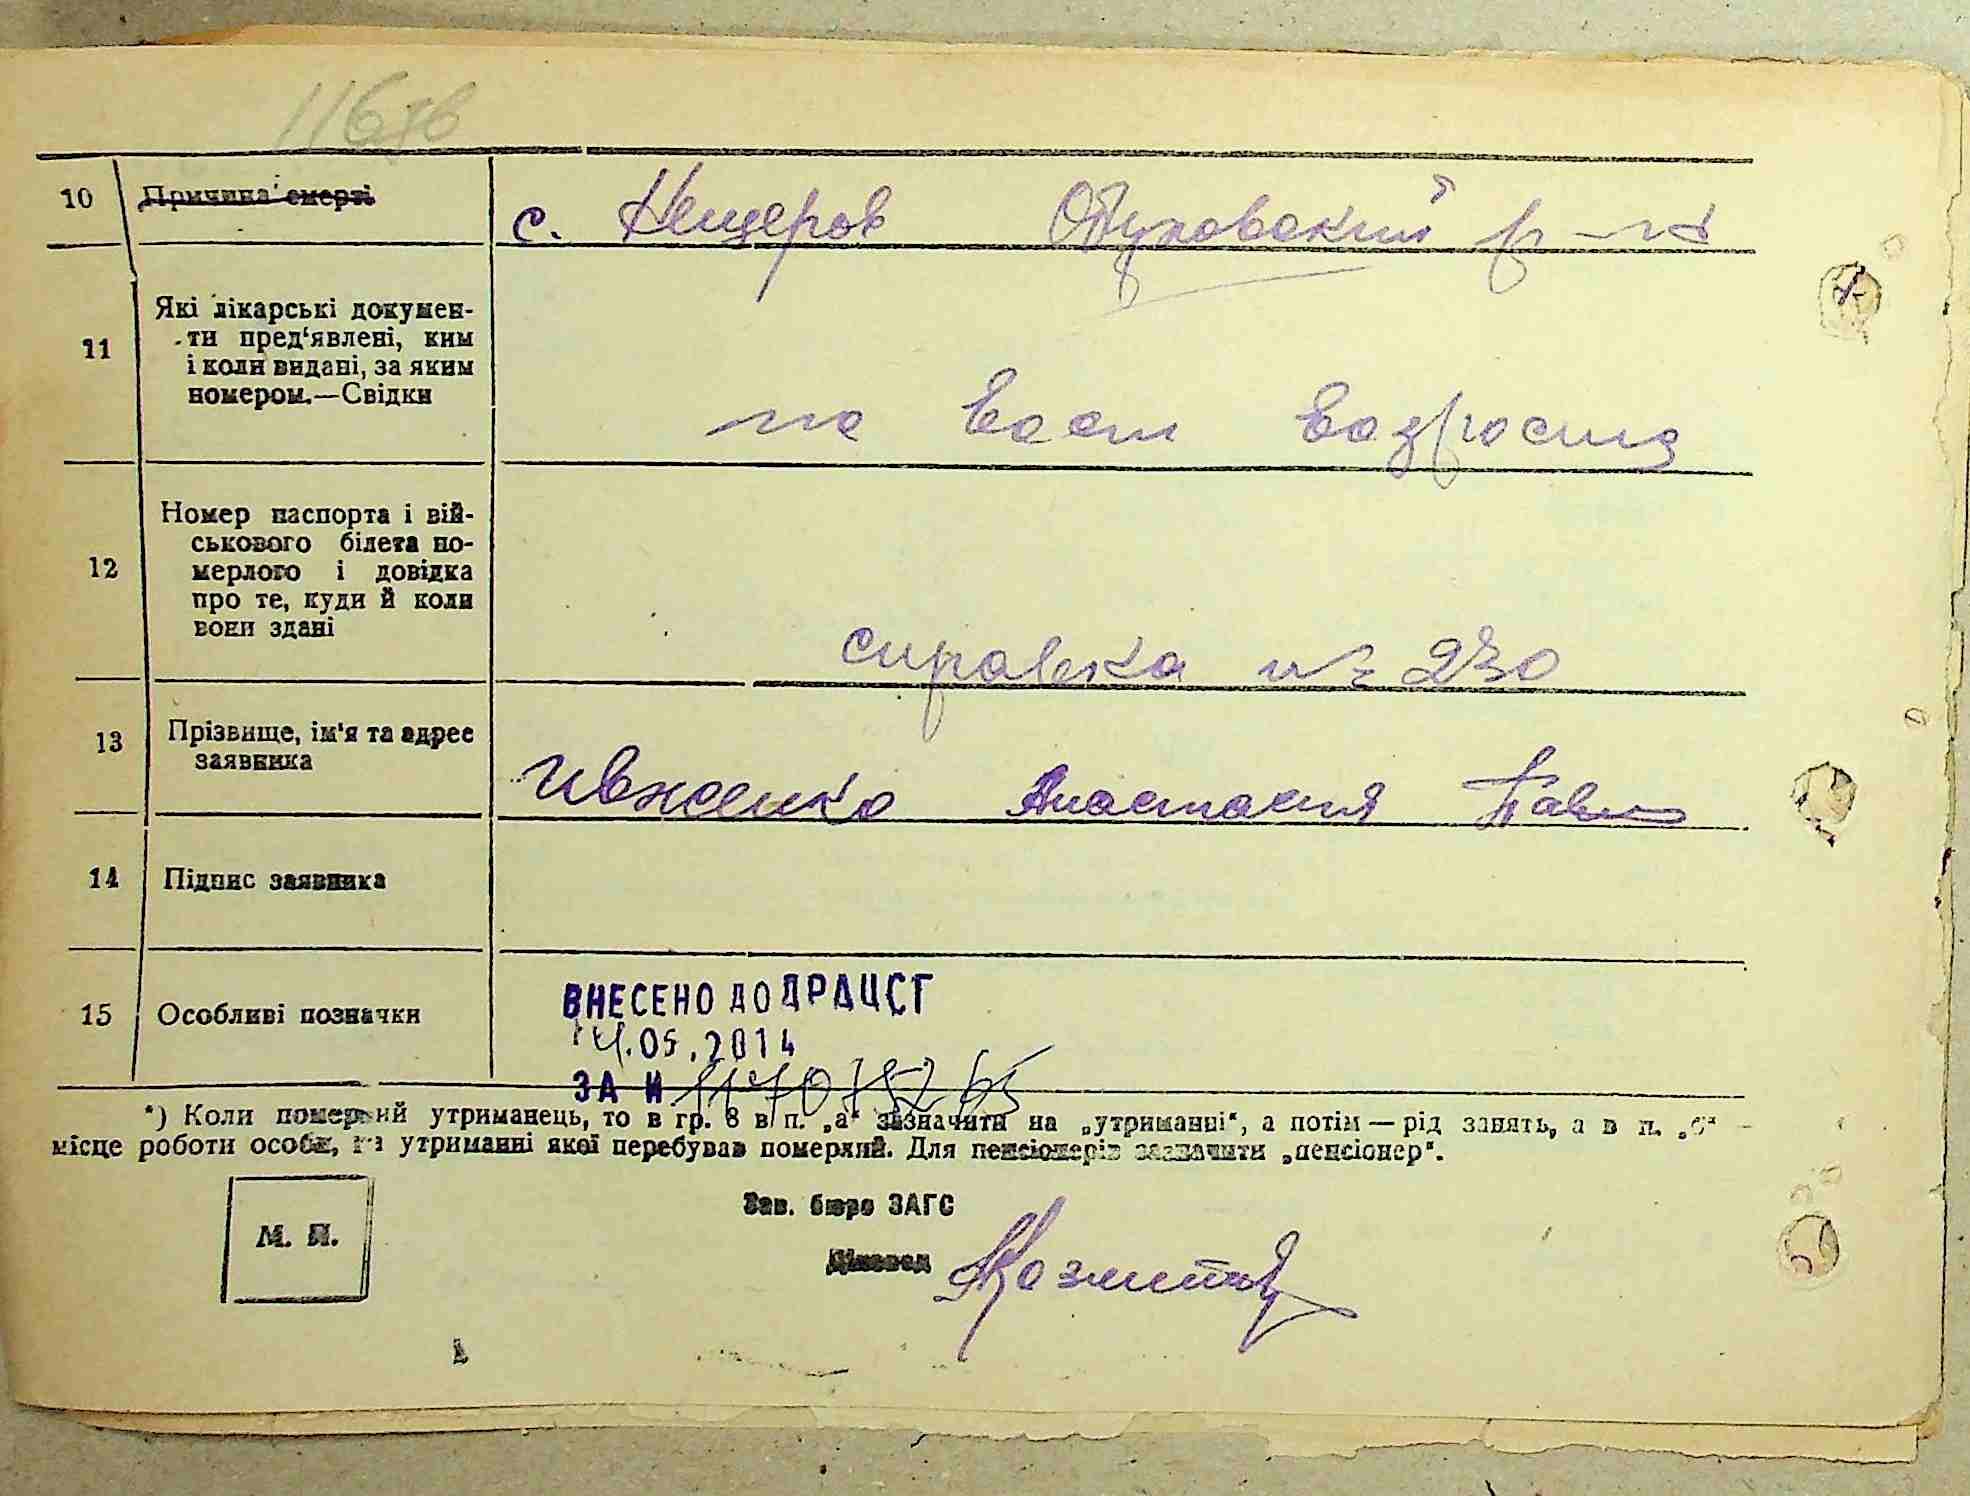 116зв
10 Причина смерті с. Нещеров Обуховский р-н
11 Які лікарські докумен-
ти пред'явлені, ким
і коли видані, за яким
номером.—Свідки
по возрасту
12 Номер паспорта і вій-
ськового білета по-
мерлого і довідка
про те, куди й коли
вони здані
справка № 230
13 Прізвище, ім'я та адрес
заявника
Ивженко Анастасия Павл
14 Підпис заявника
15 Особливі позначки
ВНЕСЕНО ДО ДРАЦСГ
14.05.2014
ЗА N
*) Коли померлий утриманець, то в гр. 8 в п. „а“ зазначити на „утриманні“, а потім — рід занять, а в п. „б“ —
місце роботи особи, на утриманні якої перебував померлий. Для пенсіонерів зазначити „пенсіонер“.
М. П.
Зав. бюро ЗАГС
Діловод
1